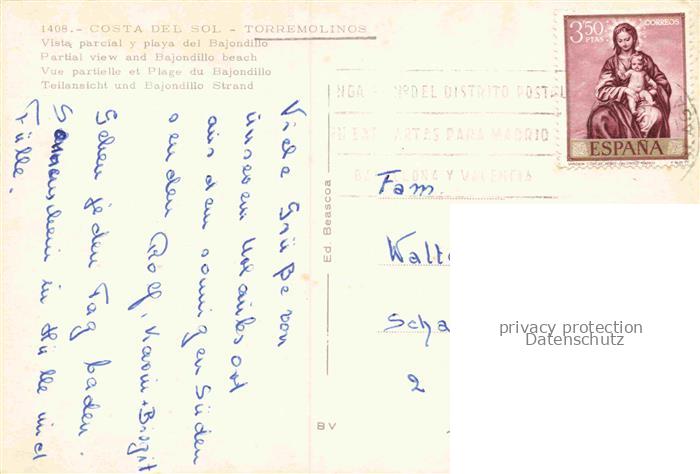 1408.- COSTA DEL SOL - TORREMOLINOS
Vista parcial y playa del Bajondillo
Partial view and Bajondillo beach
Vue partielle et Plage du Bajondillo
Teilansicht und Bajondillo Strand
Viele Grüße von
unserem Urlaubsort
aus dem sonnigen Süden
senden Rolf, Karin + Birgit
Gehen jeden Tag baden.
Sonnenschein in Hülle und
Fülle.
Ed. Beascoa
BV
3'50 PTAS
CORREOS
ESPAÑA
DEL DISTRITO POSTAL
CARTAS PARA MADRID
BARCELONA Y VALENCIA
Fam.
Walt
Scha
2
privacy protection
Datenschutz